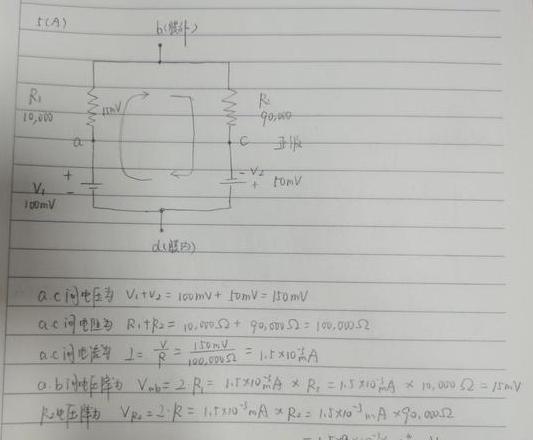 5(A)
b(膜外)
R₁
10,000
15mV
R₂
90,000
a
c
+
-
V₁
100mV
- V₂
+ 50mV
d(膜内)
a.c间电压为 V₁+V₂ = 100mV + 50mV = 150mV
a.c间电阻为 R₁+R₂ = 10,000Ω + 90,000Ω = 100,000Ω
a.c间电流为 I = V/R = 150mV/100,000Ω = 1.5×10⁻³mA
a.b间电压降为 Vab = I·R₁ = 1.5×10⁻³mA × R₁ = 1.5×10⁻³mA × 10,000Ω = 15mV
R₂电压降为 VR₂ = I·R = 1.5×10⁻³mA × R₂ = 1.5×10⁻³mA × 90,000Ω